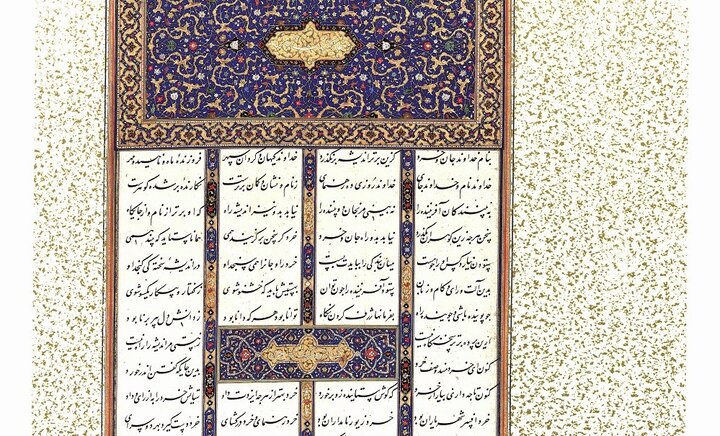 بنام خداوند جان و خرد کزین برتر اندیشه بر نگذرد خداوند کیهان و گردان سپهر فروزنده ماه و ناهید و مهر
خداوند نام و خداوند جای خداوند روزی ده رهنمای ز نام و نشان و گمان برترست نگارنده بر شده گوهرست
به بینندگان آفریننده را نه بینی مرنجان دو بیننده را نیابد بدو نیز اندیشه راه که او برتر از نام و از جایگاه
سخن هر چه زین گوهران بگذرد نیابد بدو راه جان و خرد خرد گر سخن برگزیند همی همان را ستاید که بیند همی
ستودن نداند کس او را چو هست میان بندگی را ببایدت بست خرد را و جان را همی سنجد او در اندیشه سخته کی گنجد او
بدین آلت و رای و کام و زبان ستود آفریننده را چون توان به هستیش باید که خستو شوی ز گفتار و پیکار یکسو شوی
جوینده راه بفرمانها ژرف کردن نگاه توانا بود هر که دانا بود ز دانش دل پیر برنا بود
ازین پرده برتر سخن گاه نیست ز هستی مر اندیشه را راه نیست
کنون ای خردمند وصف خرد بدین جایگه گفتن اندر خورد
کنون تا چه داری بیار از خرد که گوش ستاینده زو برخورد خرد بهتر از هر چه ایزدت داد ستایش خرد را به از راه داد
خرد افسر شهریاران بود خرد زیور نامداران بود خرد رهنمای و خرد دلگشای خرد دست گیرد بهر دو سرای